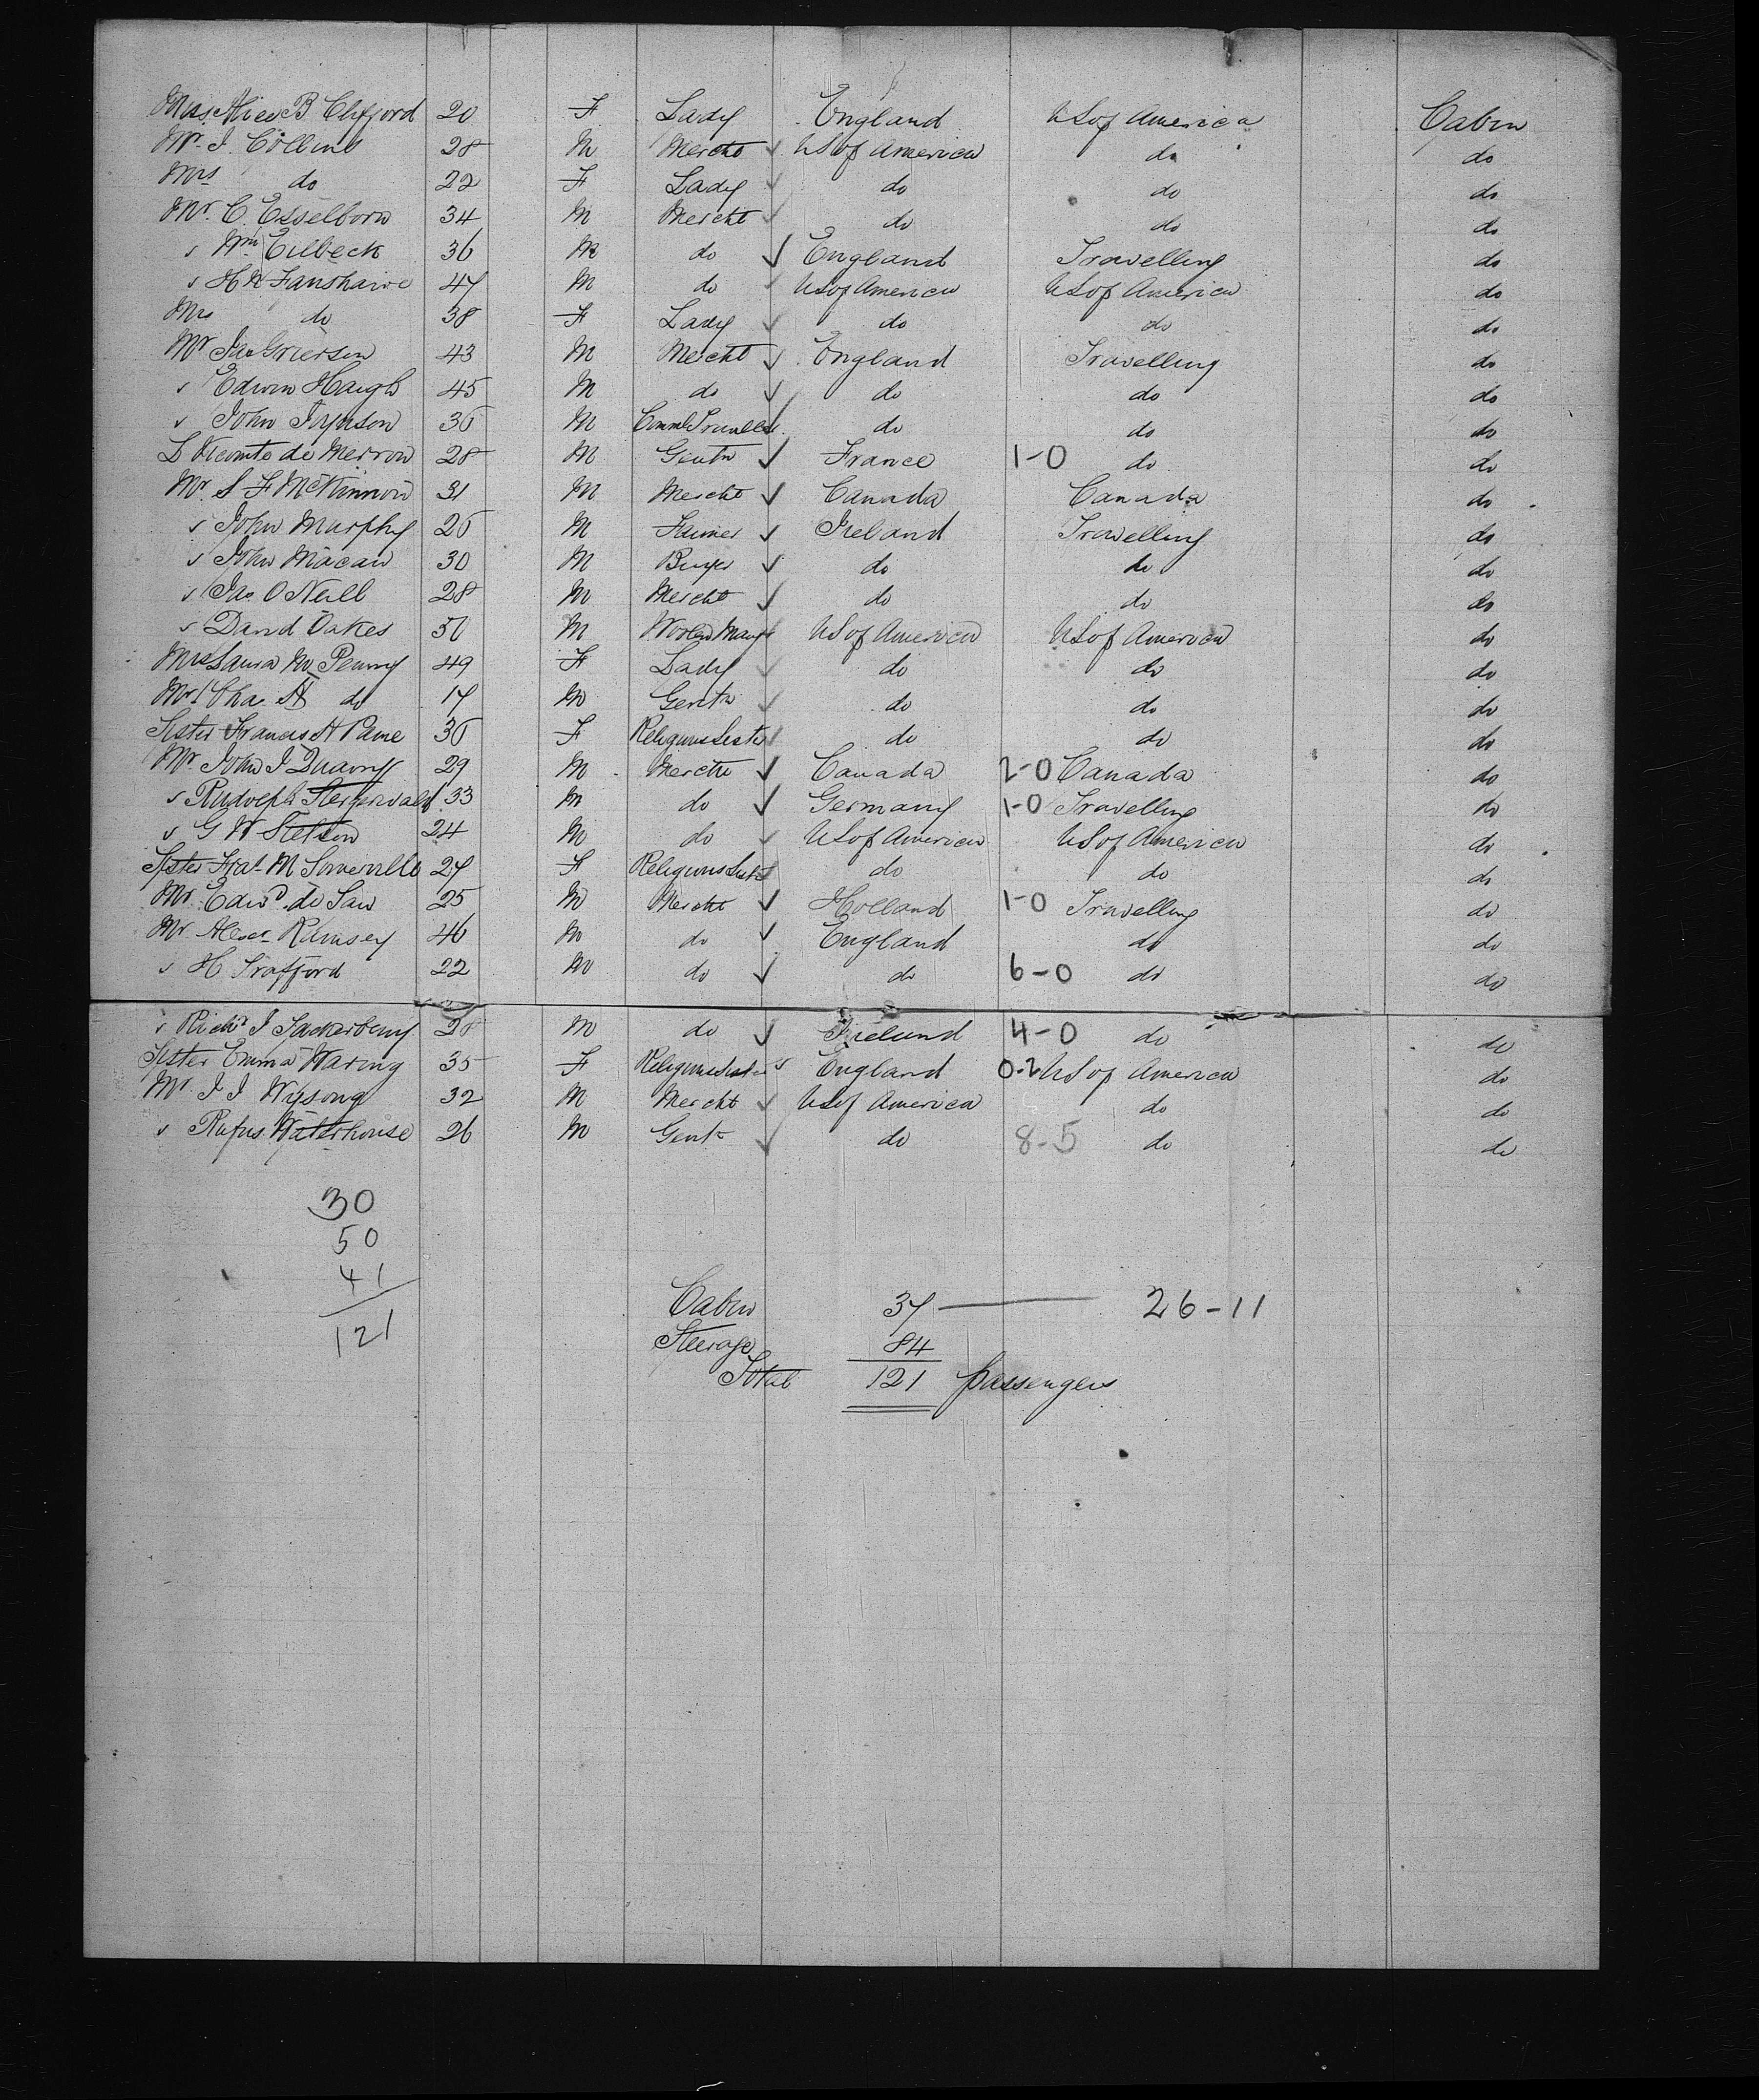 Mrs Alice B Clifford 20 F Lady England US of America Cabin
Mr. J. Collins 28 M Mercht US of America do do
Mrs do 22 F Lady do do do
Mr. C. Esselborn 34 M Mercht do do do
" Wm Eilbeck 36 M do England Travelling do
" H R Fanshawe 47 M do US of America US of America do
Mrs do 38 F Lady do do do
Mr Jas Grierson 43 M Mercht England Travelling do
" Edwin Haigh 45 M do do do do
" John Joynson 36 M Comml Traveller do do do
Vicomte de Merron 28 M Gentn France 1-0 do do
Mr. S F McKinnon 31 M Mercht Canada Canada do
" John Murphy 26 M Farmer Ireland Travelling do
" John Macaw 30 M Buyer do do do
" Jas. O Neill 28 M Mercht do do do
" David Oakes 56 M Woolen Manf US of America US of America do
Mrs Laura M. Penny 49 F Lady do do do
Mr. Chas. A do 17 M Gentn do do do
Sister Frances A Paine 36 F Religious Sister do do do
Mr. John J 29 M Mercht Canada 2-0 Canada do
" Rudolph 33 M do Germany 1-0 Travelling do
" G W Stetson 24 M do US of America US of America do
Sister M Somerville 27 F Religious Sister do do do
Mr. Edwd. de 25 M Mercht Holland 1-0 Travelling do
Mr Alexr Ramsey 46 M do England do do
" H Trafford 22 M do do 6-0 do do
" Richd J 28 M do Ireland 4-0 do do
Sister Emma Waring 35 F Religious Sister England 0.2 US of America do
Mr. J J Wysong 32 M Mercht US of America do do
" Rufus Waterhouse 26 M Gentn do 8-5 do do
30
50
41
121
Cabin 37 — 26-11
Steerage 84
Total 121 passengers